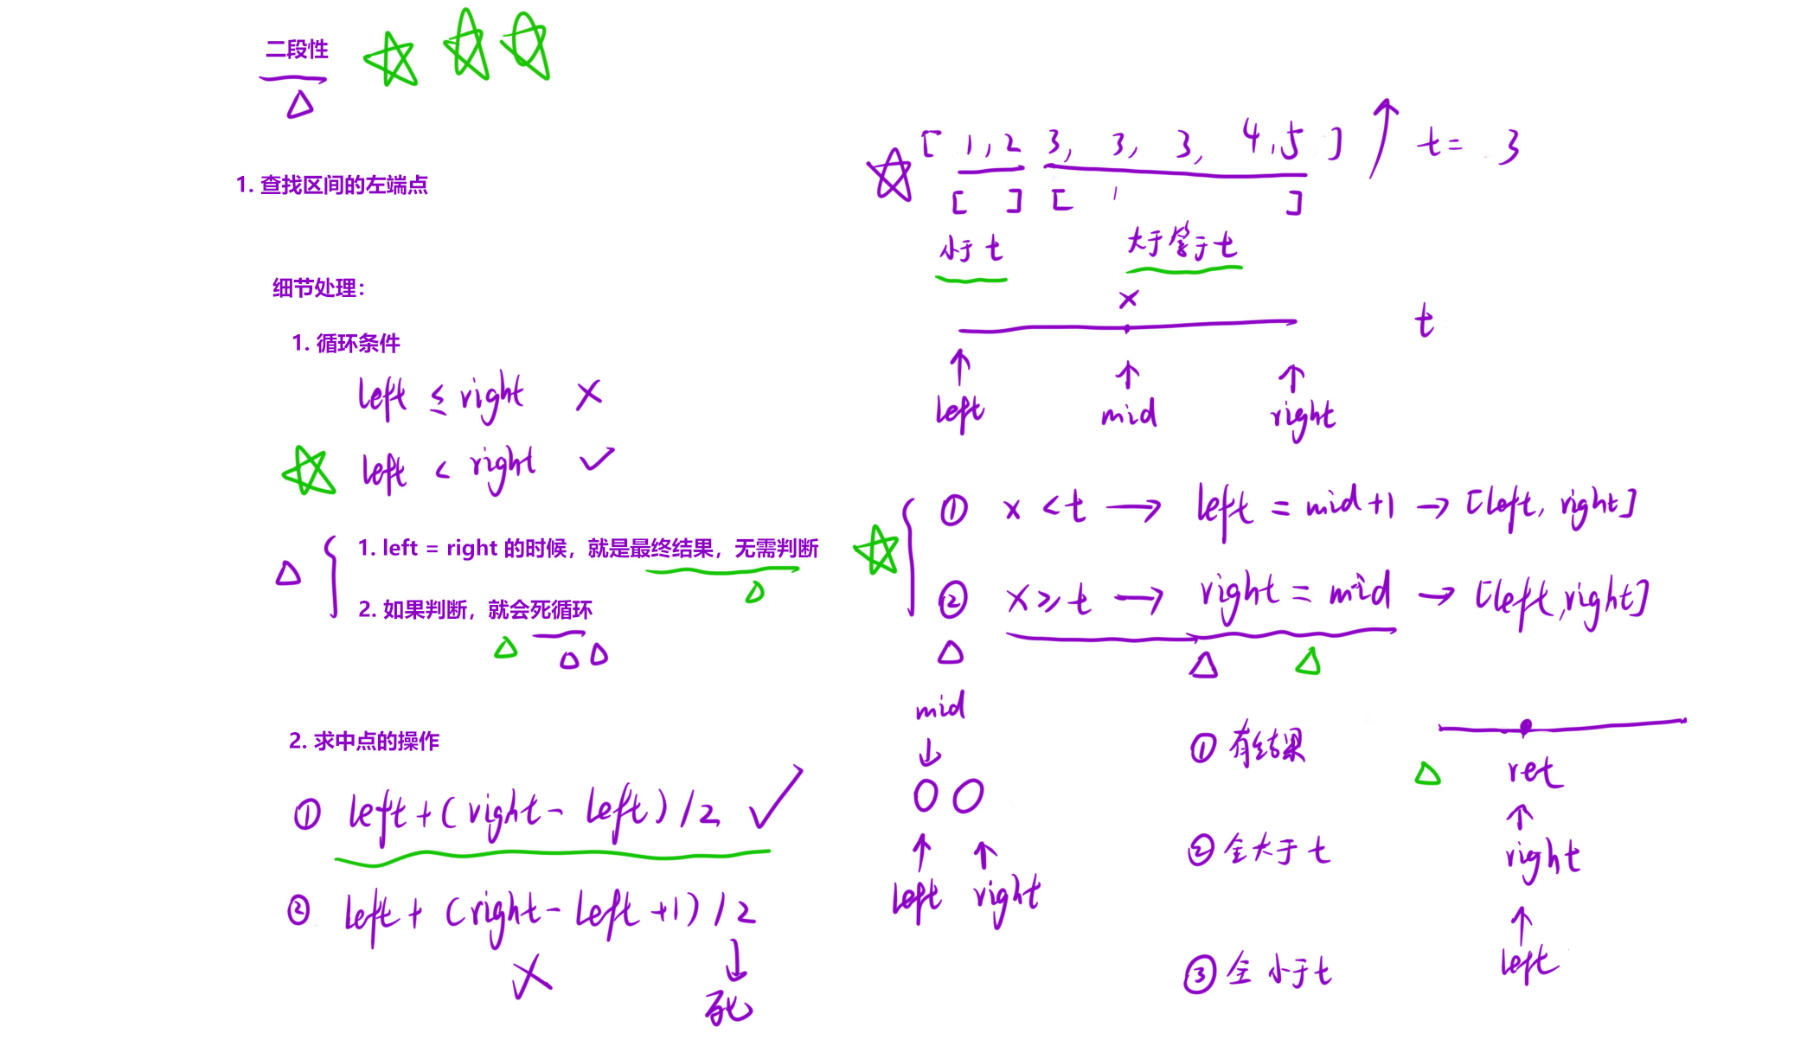 二段性
1. 查找区间的左端点
细节处理：
1. 循环条件
left ≤ right ×
left < right ✓
1. left = right 的时候，就是最终结果，无需判断
2. 如果判断，就会死循环
2. 求中点的操作
① left+(right-left)/2 ✓
② left+(right-left+1)/2
×
死
[ 1,2 3, 3, 3, 4,5 ] t= 3
[ ] [ ]
小于t 大于等于t
x
t
left mid right
① x<t → left = mid+1 → [left, right]
② x≥t → right = mid → [left,right]
mid
left right
① 有结果
② 全大于t
③ 全小于t
ret
right
left